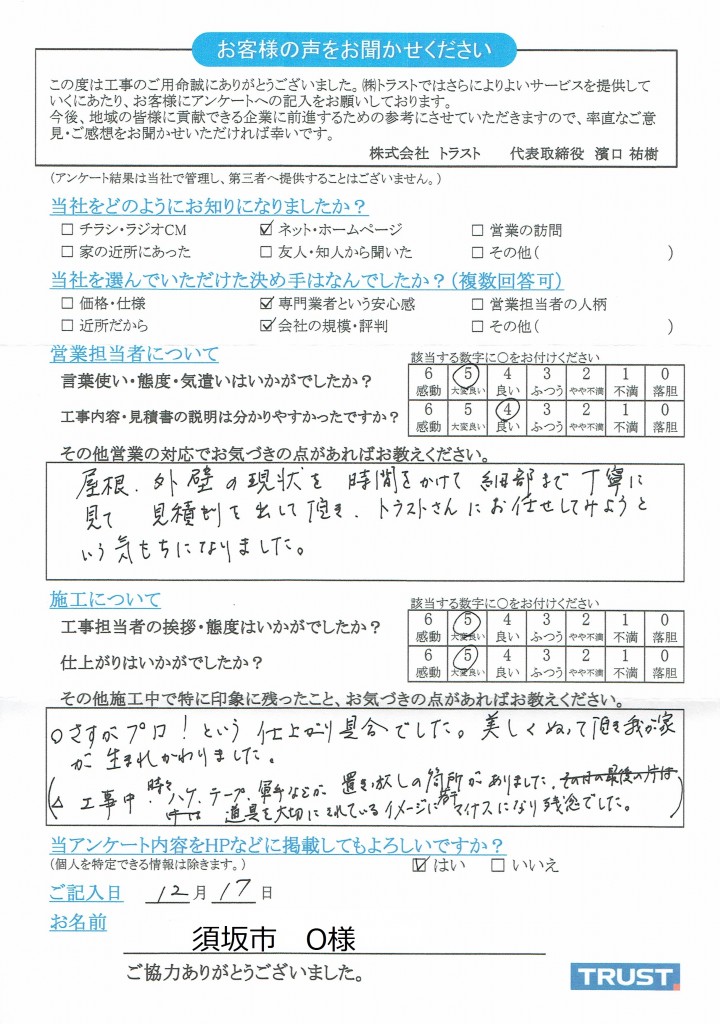 お客様の声をお聞かせください
この度は工事のご用命誠にありがとうございました。㈱トラストではさらによりよいサービスを提供して
いくにあたり、お客様にアンケートへの記入をお願いしております。
今後、地域の皆様に貢献できる企業に前進するための参考にさせていただきますので、率直なご意
見・ご感想をお聞かせいただければ幸いです。
株式会社 トラスト 代表取締役 濱口 祐樹
(アンケート結果は当社で管理し、第三者へ提供することはございません。)
当社をどのようにお知りになりましたか?
□ チラシ・ラジオCM ☑ ネット・ホームページ □ 営業の訪問
□ 家の近所にあった □ 友人・知人から聞いた □ その他( )
当社を選んでいただけた決め手はなんでしたか?(複数回答可)
□ 価格・仕様 ☑ 専門業者という安心感 □ 営業担当者の人柄
□ 近所だから ☑ 会社の規模・評判 □ その他( )
営業担当者について 該当する数字に○をお付けください
言葉使い・態度・気遣いはいかがでしたか? 6 5 4 3 2 1 0
感動 大変良い 良い ふつう やや不満 不満 落胆
工事内容・見積書の説明は分かりやすかったですか? 6 5 4 3 2 1 0
感動 大変良い 良い ふつう やや不満 不満 落胆
その他営業の対応でお気づきの点があればお教えください。
屋根、外壁の現状を時間をかけて細部まで丁寧に
見て 見積りを出して頂き、トラストさんにお任せしてみようと
いう気もちになりました。
施工について 該当する数字に○をお付けください
工事担当者の挨拶・態度はいかがでしたか? 6 5 4 3 2 1 0
感動 大変良い 良い ふつう やや不満 不満 落胆
仕上がりはいかがでしたか? 6 5 4 3 2 1 0
感動 大変良い 良い ふつう やや不満 不満 落胆
その他施工中で特に印象に残ったこと、お気づきの点があればお教えください。
○さすがプロ!という仕上がり具合でした。美しくぬって頂き我が家
が生まれかわりました。
(△ 工事中、時々ハケ、テープ、軍手などが置き放しの箇所がありました。
道具を大切にされているイメージに マイナスになり残念でした。)
当アンケート内容をHPなどに掲載してもよろしいですか?
(個人を特定できる情報は除きます。) ☑ はい □ いいえ
ご記入日 12月17日
お名前
須坂市 O様
ご協力ありがとうございました。
TRUST